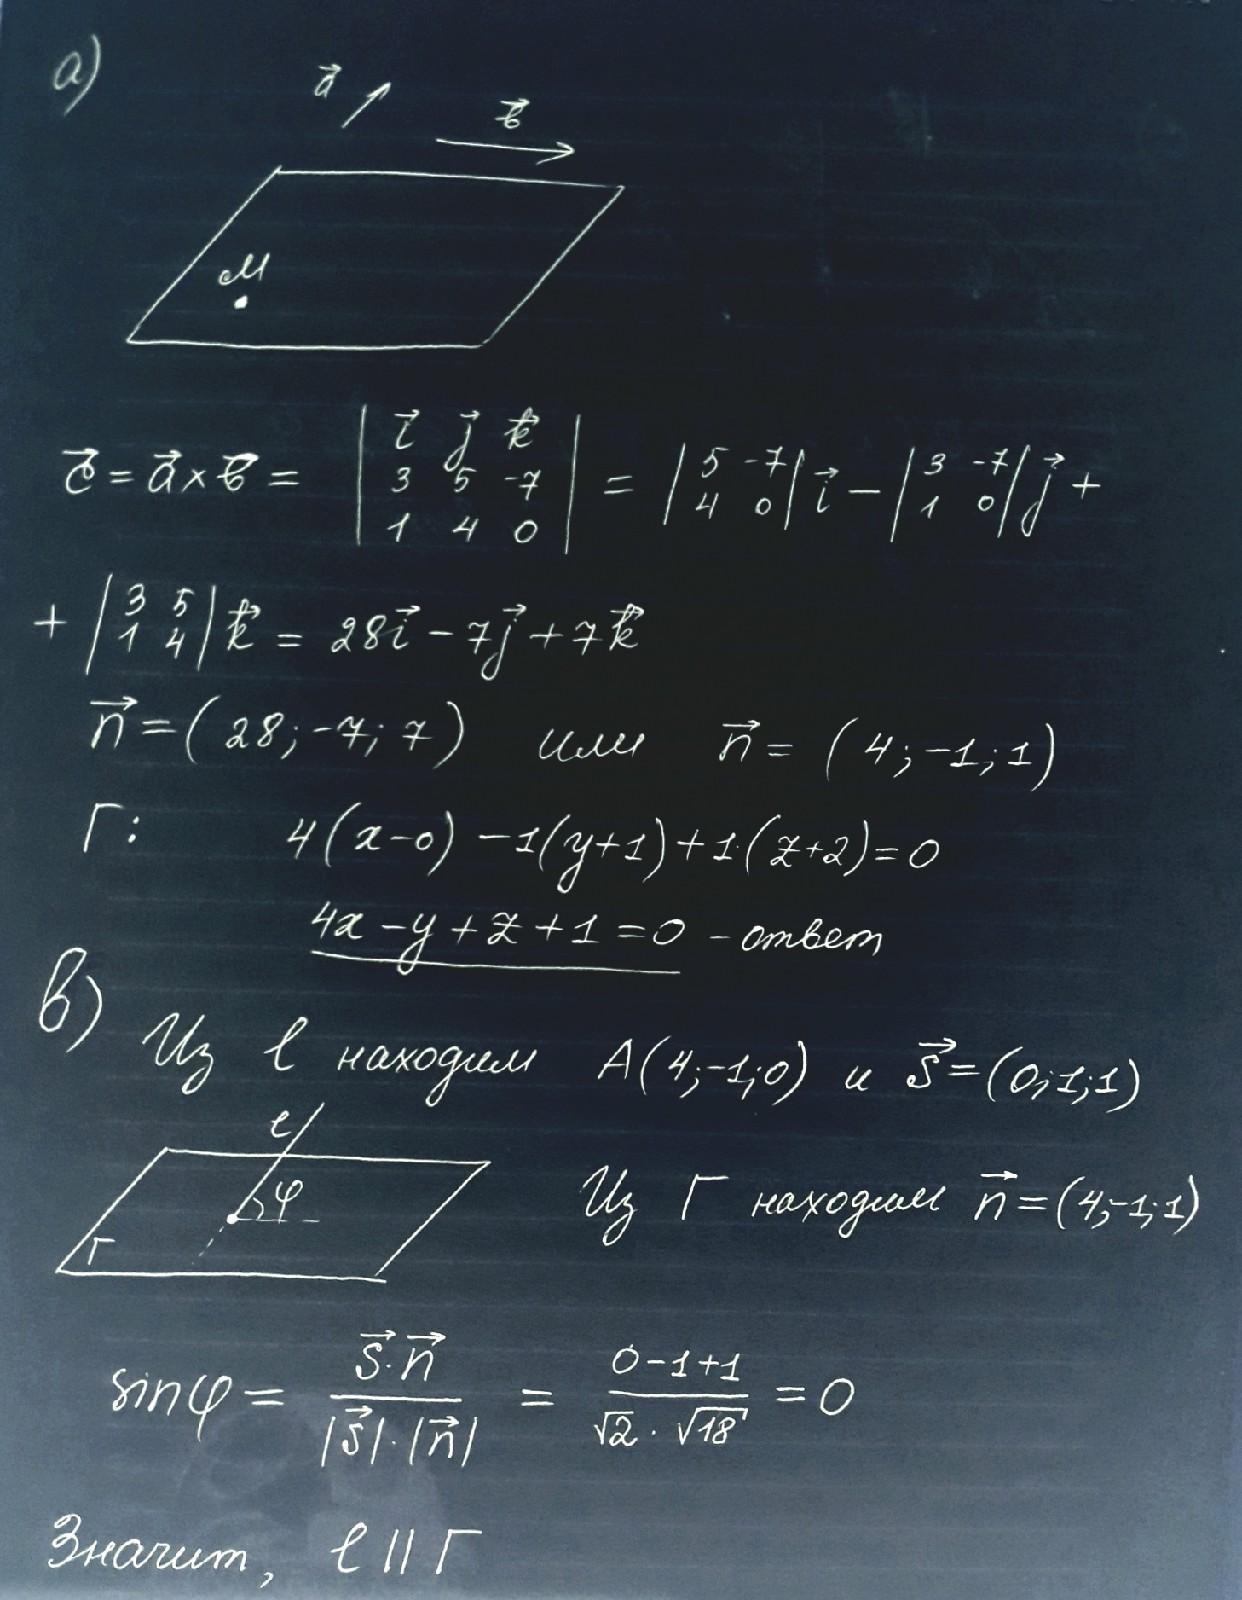 а)
a⃗
b⃗
M
c⃗ = a⃗ × b⃗ = | i⃗ j⃗ k⃗ ; 3 5 -7 ; 1 4 0 | = | 5 -7 ; 4 0 | i⃗ - | 3 -7 ; 1 0 | j⃗ +
+ | 3 5 ; 1 4 | k⃗ = 28i⃗ - 7j⃗ + 7k⃗
n⃗ = (28; -7; 7) или n⃗ = (4; -1; 1)
Г: 4(x-0) - 1(y+1) + 1·(z+2) = 0
4x - y + z + 1 = 0 - ответ
в) Из l находим A(4;-1;0) и S⃗ = (0;1;1)
l
φ
Г
Из Г находим n⃗ = (4;-1;1)
sinφ = S⃗·n⃗ / |S⃗|·|n⃗| = 0-1+1 / √2 · √18 = 0
Значит, l || Г